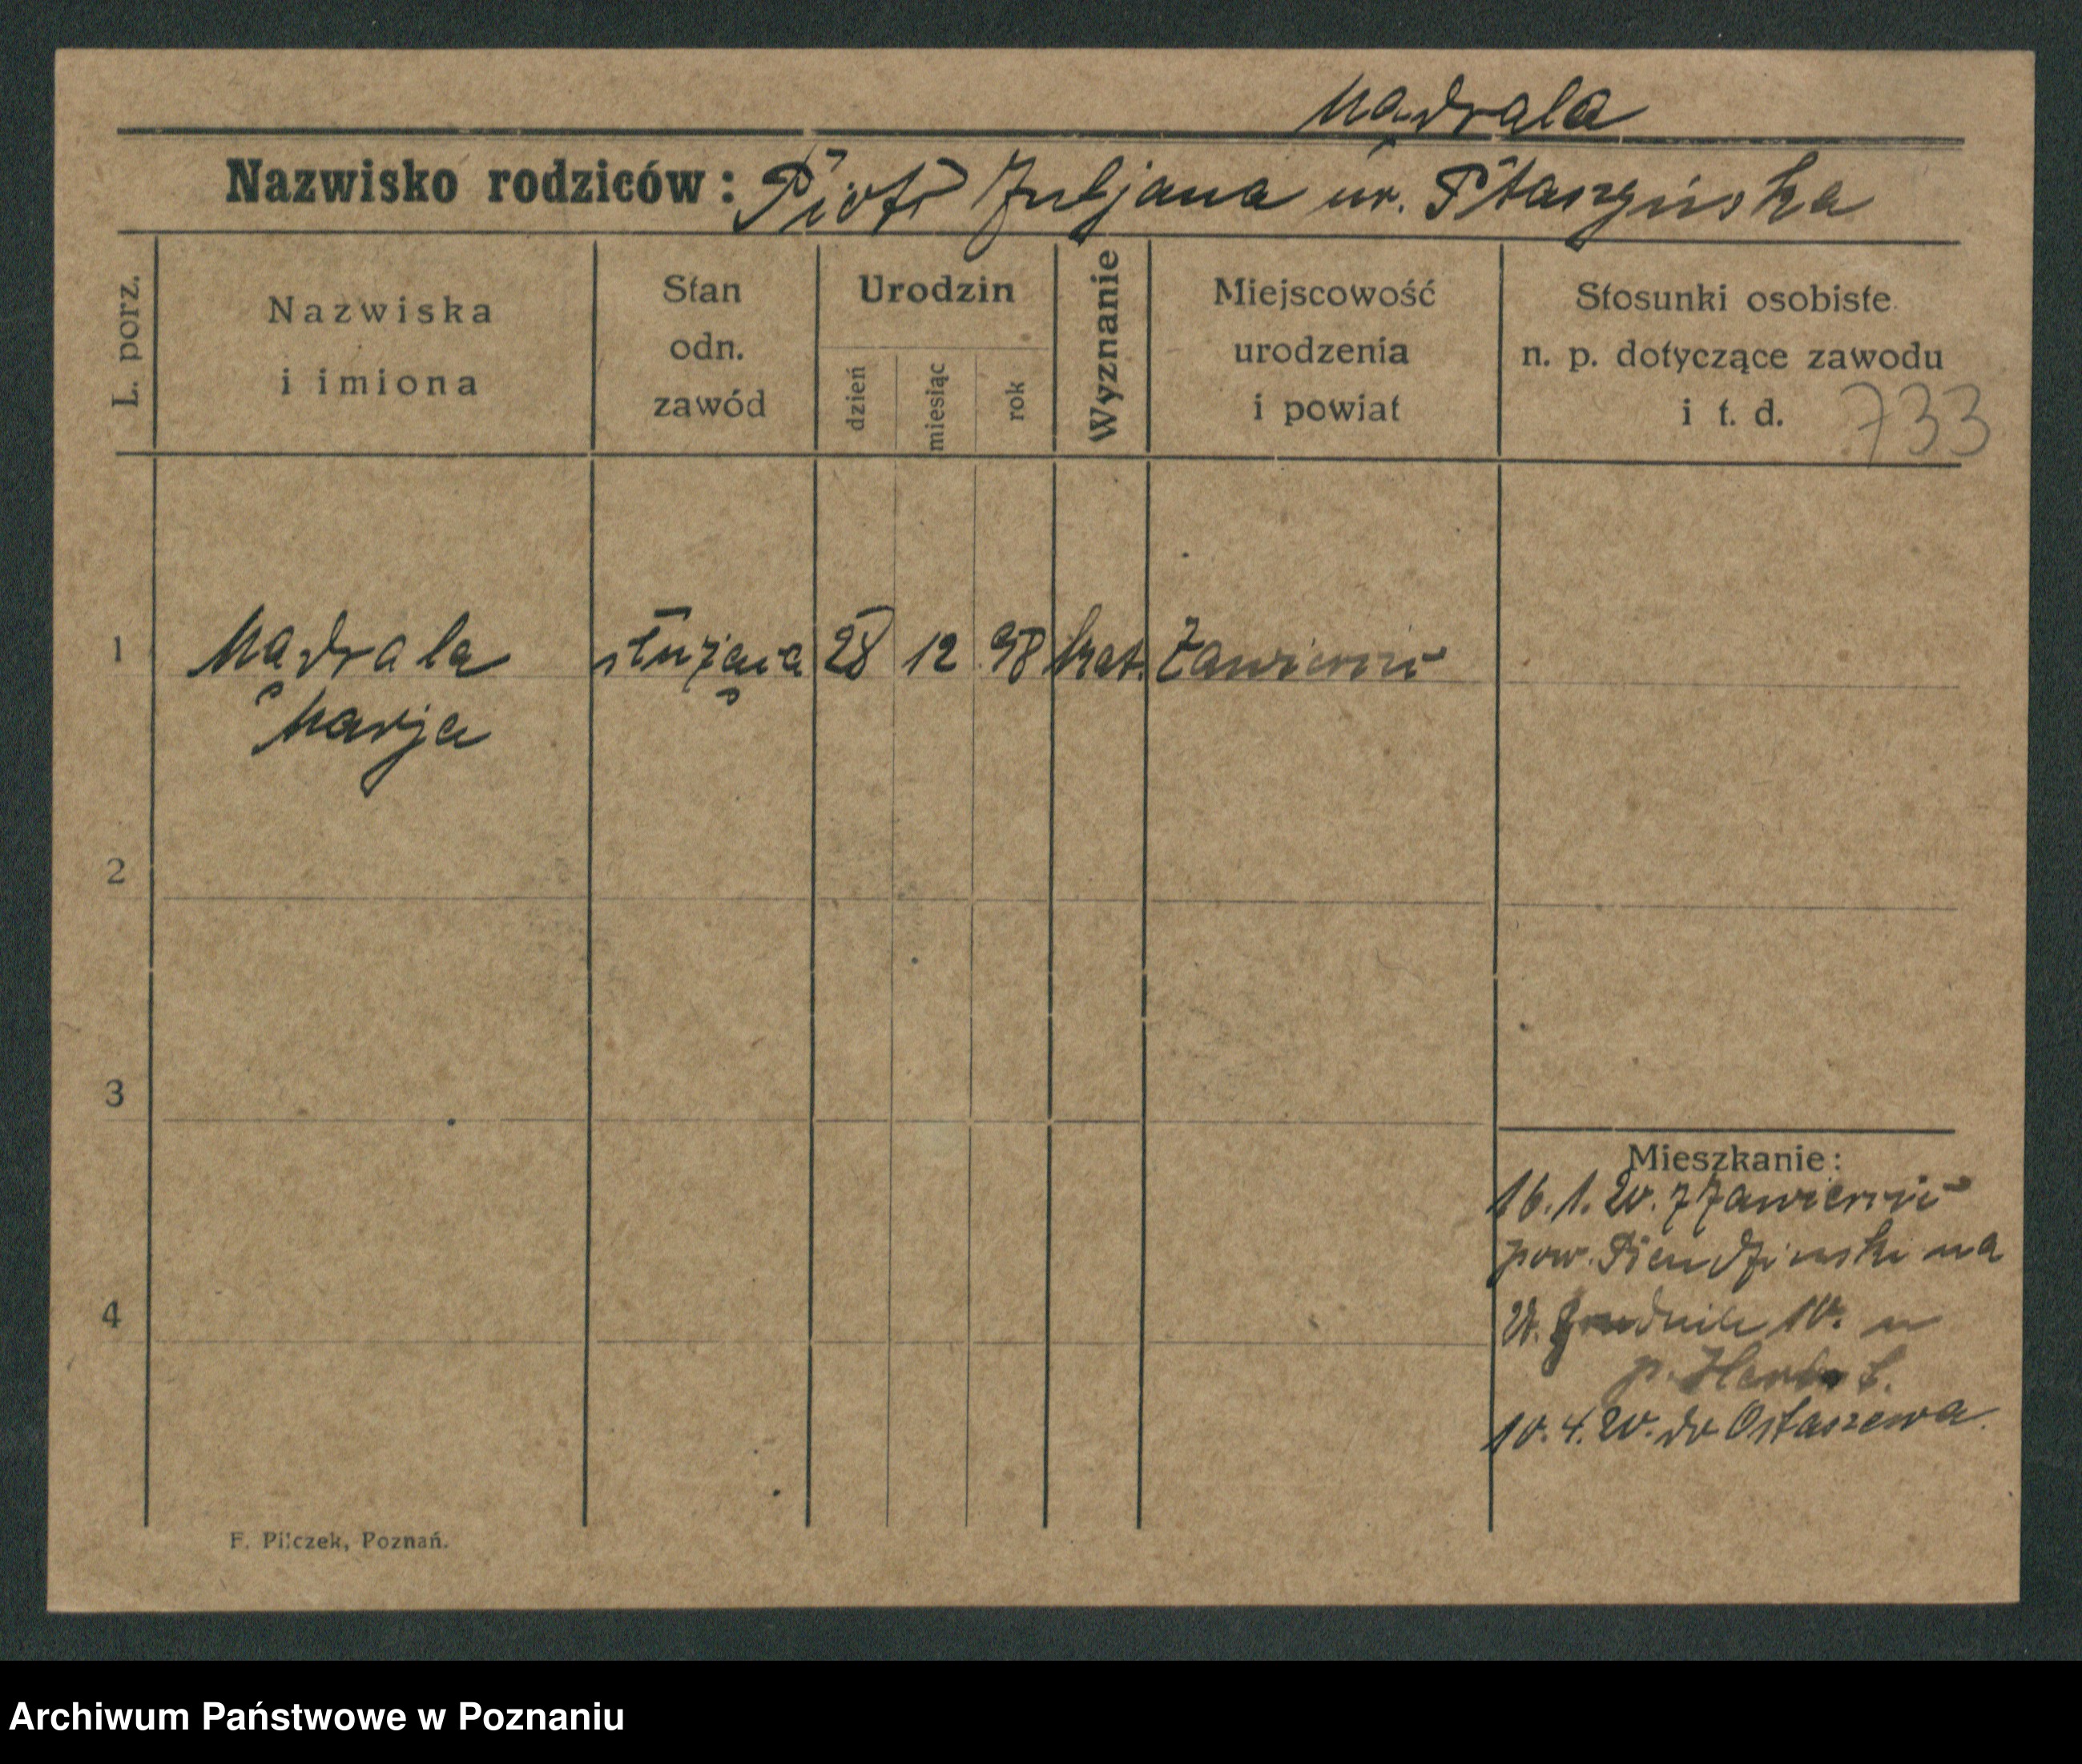 Mądrala
Nazwisko rodziców: Piotr Juljana ur. Ptaszyńska
L. porz.
Nazwiska
i imiona
Stan
odn.
zawód
Urodzin
dzień
miesiąc
rok
Wyznanie
Miejscowość
urodzenia
i powiat
Stosunki osobiste
n. p. dotyczące zawodu
i t. d. 733
1 Mądrala służąca 28 12 98 kat.
Marja
2
3
4
Mieszkanie:
16.1.20. z
pow. na
10.
p.
10.4.20. do Ostaszewa.
F. Pilczek, Poznań.
Archiwum Państwowe w Poznaniu